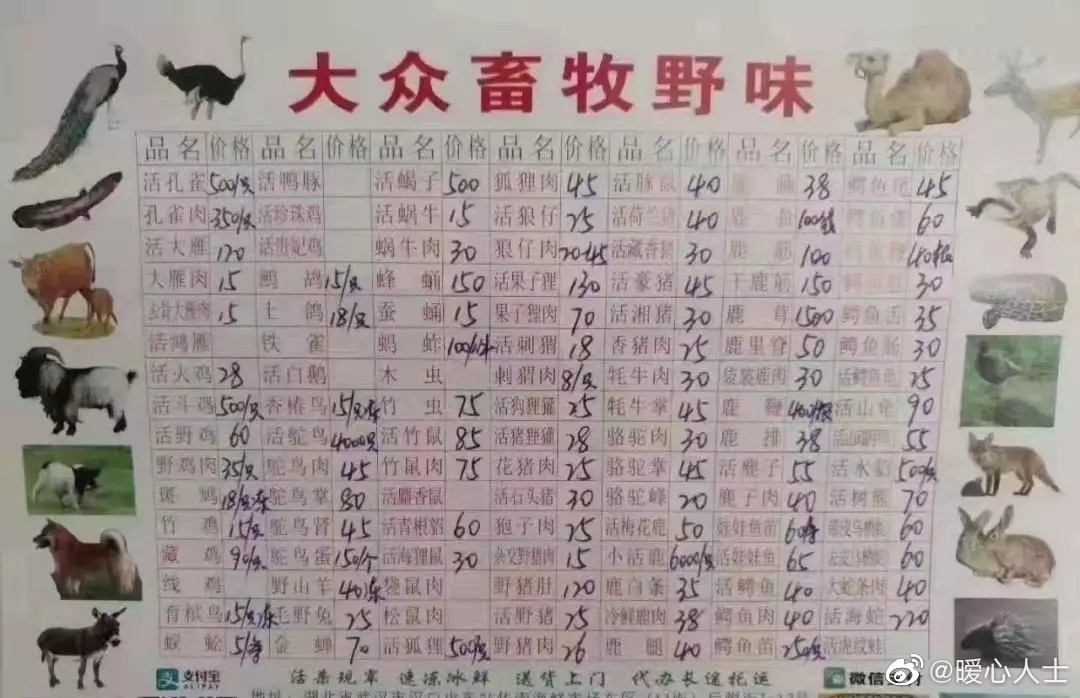 大众畜牧野味
品名 价格 品名 价格 品名 价格 品名 价格 品名 价格 品名 价格 品名 价格
活孔雀 500/只 活鸭豚 活蝎子 500 狐狸肉 45 活豚鼠 40 38 鳄鱼尾 45
孔雀肉 350/只 活珍珠鸡 活蜗牛 15 活狼仔 25 活荷兰猪 40 60
活大雁 120 活贵妃鸡 蜗牛肉 30 狼仔肉 20-45 活藏香猪 30 鹿筋 100
大雁肉 15 鹧鸪 15/只 蜂蛹 150 活果子狸 130 活豪猪 45 干鹿筋 150 30
去骨大雁肉 15 土鸽 18/只 蚕蛹 15 果子狸肉 70 活湘猪 30 鹿茸 1500 鳄鱼舌 35
活鸿雁 铁雀 蚂蚱 活刺猬 18 香猪肉 25 鹿里脊 50 鳄鱼肠 30
活火鸡 28 活白鹅 木虫 刺猬肉 8/只 牦牛肉 30 袋装鹿肉 30 活鳄鱼龟 25
活斗鸡 500/只 香椿鸟 15/只冻 竹虫 75 活狗狸獾 25 牦牛掌 45 鹿鞭 活山龟 90
活野鸡 60 活鸵鸟 4000只 活竹鼠 85 活猪狸獾 28 骆驼肉 30 鹿排 38 55
野鸡肉 35/只 鸵鸟肉 45 竹鼠肉 75 花猪肉 25 骆驼掌 45 活麂子 55 活水貂 500/只
斑鸠 18/只冻 鸵鸟掌 80 活麝香鼠 活石头猪 30 骆驼峰 20 麂子肉 40 活树熊 70
竹鸡 15/只 鸵鸟肾 45 活青根貂 60 狍子肉 25 活梅花鹿 50 娃娃鱼苗 60
藏鸡 90/只 鸵鸟蛋 150/个 活海狸鼠 30 杂交野猪肉 15 小活鹿 6000/只 活娃娃鱼 65 60
线鸡 野山羊 40冻 袋鼠肉 野猪肚 120 鹿白条 35 活鳄鱼 40 大蛇条肉 40
育槟鸟 15/只冻 毛野兔 25 松鼠肉 活野猪 25 冷鲜鹿肉 38 鳄鱼肉 40 活海蛇 220
蜈蚣 金蝉 70 活狐狸 500/只 野猪肉 26 鹿腿 40 鳄鱼苗 250/只 活虎纹蛙
支付宝 ALIPAY 活杀现宰 速冻冰鲜 送货上门 代办长途托运 微信
@暖心人士